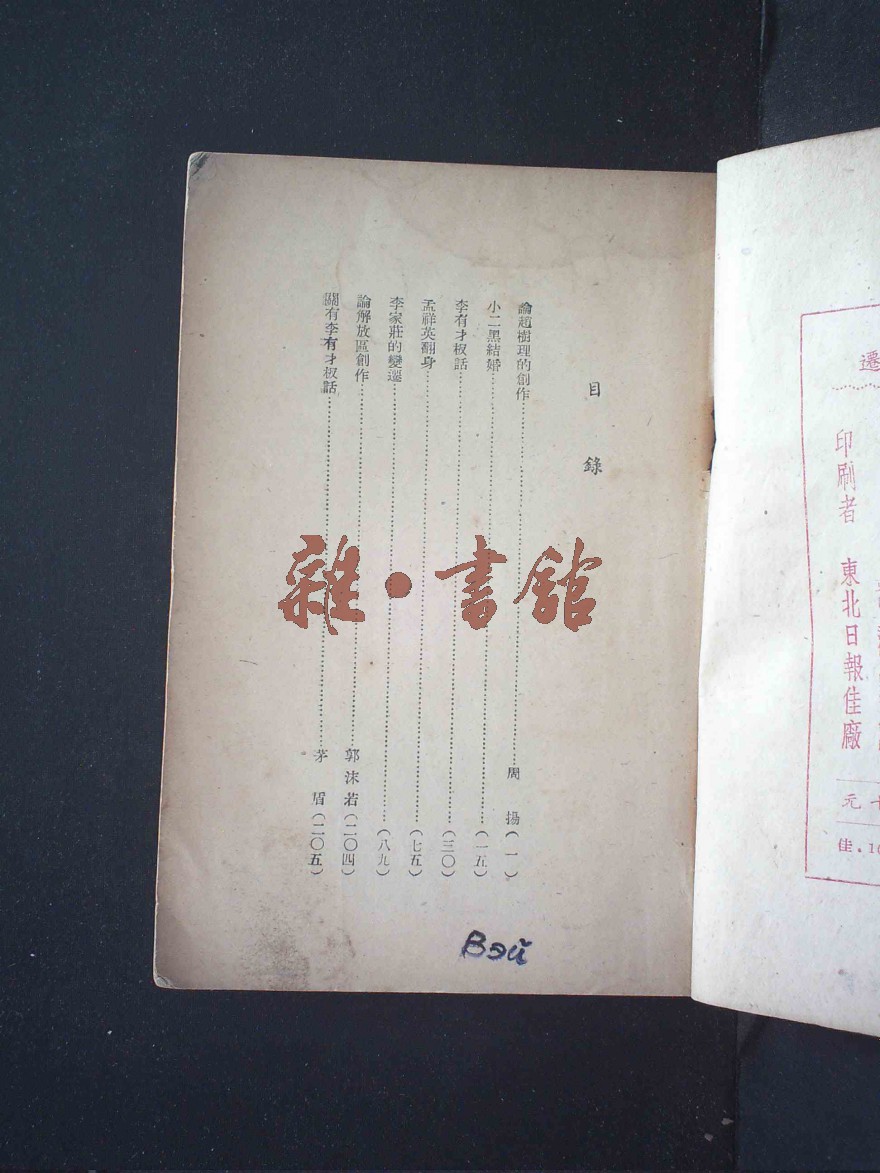 目錄
論趙樹理的創作 周揚（一）
小二黑結婚（一五）
李有才板話（三〇）
孟祥英翻身（七五）
李家莊的變遷（八九）
論解放區創作 郭沫若（二〇四）
關有李有才板話 茅盾（二〇五）
雜·書館
Вэй
遷
印刷者 東北日報佳廠
元
佳.1